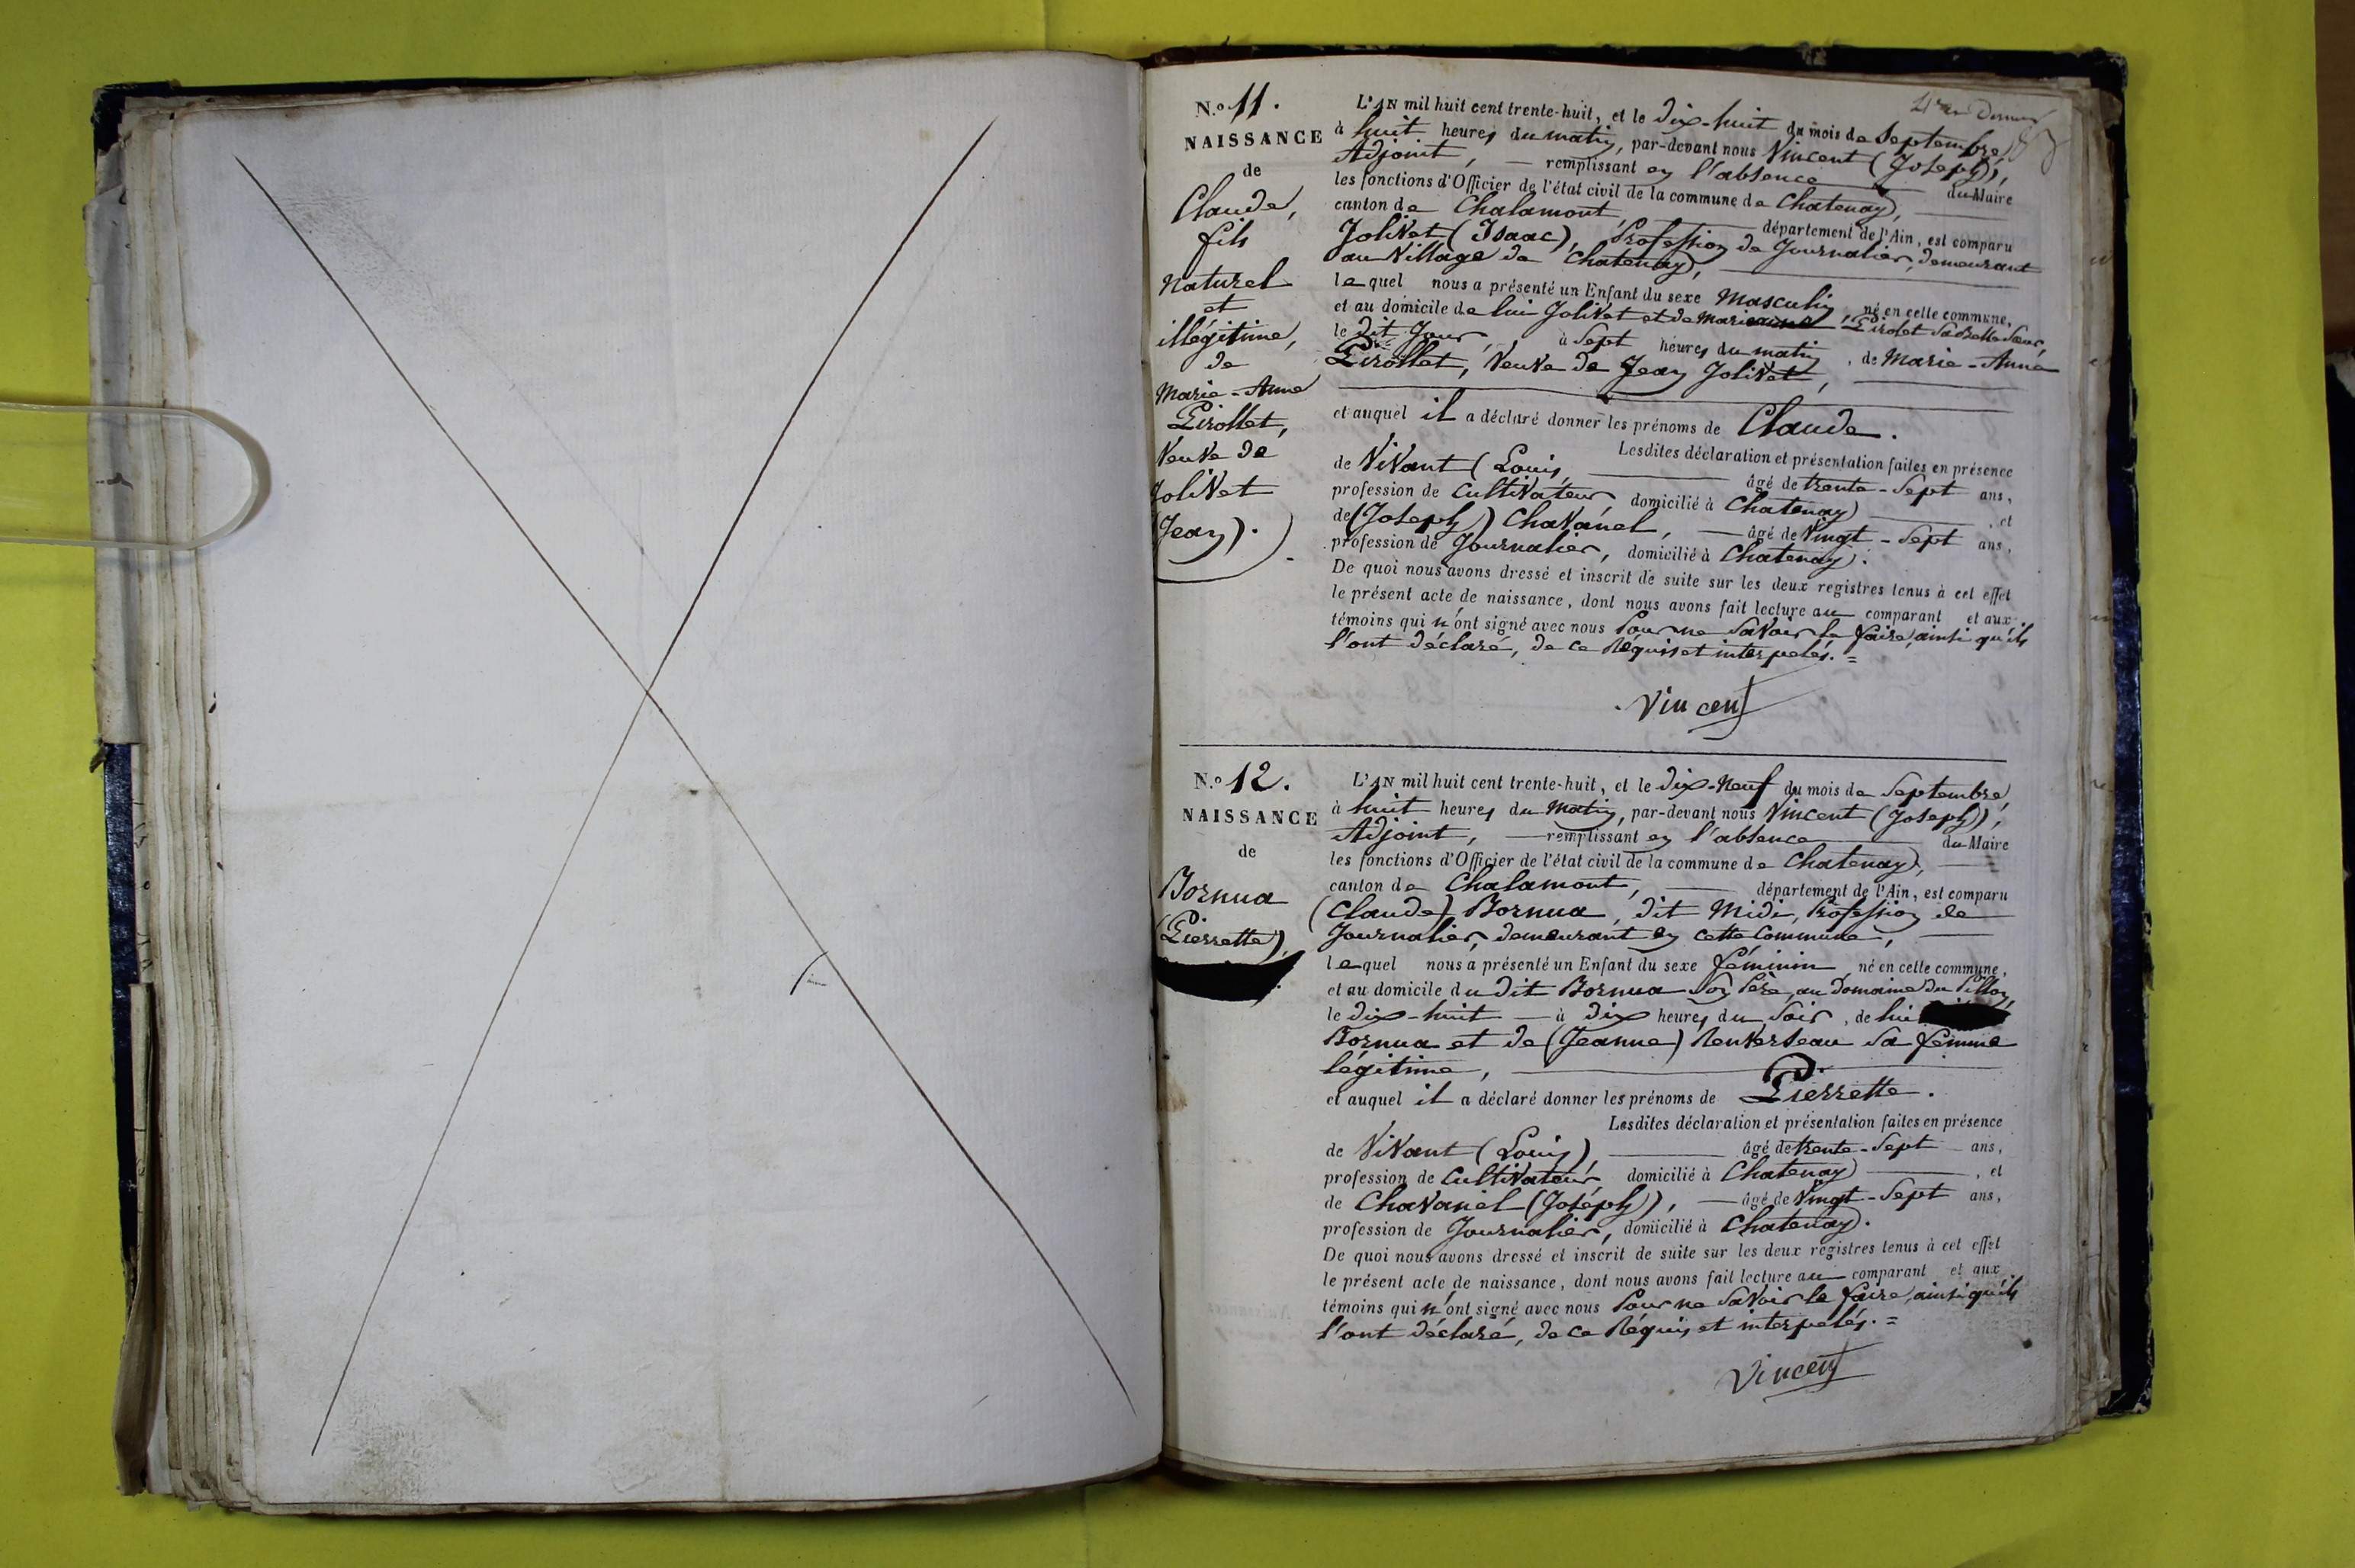 N.o 11.
NAISSANCE
de
Claude,
fils
Naturel
et
illégitime,
de
Marie-Anne
Pirollet,
Veuve de
Jolivet
(Jean).
L'AN mil huit cent trente-huit, et le dix-huit du mois de Septembre,
à huit heures du matin, par-devant nous Vincent (Joseph),
Adjoint, remplissant en l'absence du Maire
les fonctions d'Officier de l'état civil de la commune de Chatenay,
canton de Chalamont, département de l'Ain, est comparu
Jolivet (Isaac), Profession de Journalier, demeurant
au Village de Chatenay,
lequel nous a présenté un Enfant du sexe Masculin, né en cette commune,
et au domicile de lui Jolivet et de Marieanne Pirolet sa Belle Sœur,
le dit Jour, à Sept heures du matin, de Marie-Anne
Pirollet, Veuve de Jean Jolivet,
et auquel il a déclaré donner les prénoms de Claude.
Lesdites déclaration et présentation faites en présence
de Vivant (Louis, âgé de trente-Sept ans,
profession de Cultivateur, domicilié à Chatenay, et
de (Joseph) Chavanel, âgé de Vingt-Sept ans,
profession de Journalier, domicilié à Chatenay.
De quoi nous avons dressé et inscrit de suite sur les deux registres tenus à cet effet
le présent acte de naissance, dont nous avons fait lecture au comparant et aux
témoins qui n'ont signé avec nous Pour ne Savoir le faire, ainsi qu'ils
l'ont déclaré, de ce Réquis et interpelés. =
Vincent
N.o 12.
NAISSANCE
de
Bornua
(Pierrette),
L'AN mil huit cent trente-huit, et le dix-Neuf du mois de Septembre,
à huit heures du Matin, par-devant nous Vincent (Joseph),
Adjoint, remplissant en l'absence du Maire
les fonctions d'Officier de l'état civil de la commune de Chatenay,
canton de Chalamont, département de l'Ain, est comparu
(Claude) Bornua, dit Midi, Profession de
Journalier, demeurant en cette Commune,
lequel nous a présenté un Enfant du sexe féminin, né en cette commune,
et au domicile du dit Bornua Son Père, au Domaine du Pillon,
le dix-huit à dix heures du Soir, de lui
Bornua et de (Jeanne) Renverseau Sa femme
légitime,
et auquel il a déclaré donner les prénoms de Pierrette.
Lesdites déclaration et présentation faites en présence
de Vivant (Louis), âgé de trente-Sept ans,
profession de Cultivateur, domicilié à Chatenay, et
de Chavanel (Joséph), âgé de Vingt-Sept ans,
profession de Journalier, domicilié à Chatenay.
De quoi nous avons dressé et inscrit de suite sur les deux registres tenus à cet effet
le présent acte de naissance, dont nous avons fait lecture au comparant et aux
témoins qui n'ont signé avec nous Pour ne Savoir le faire, ainsi qu'ils
l'ont déclaré, de ce Réquis et interpelés. =
Vincent